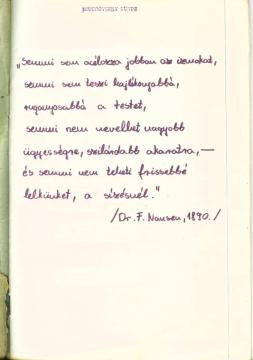 „Semmi sem acélozza jobban az izmokat,
semmi sem teszi hajlékonyabbá,
ruganyosabbá a testet,
semmi nem nevelhet nagyobb
ügyességre, szilárdabb akaratra, —
és semmi nem teheti frissebbé
lelkünket, a sízésnél."
/Dr. F. Nansen, 1890./